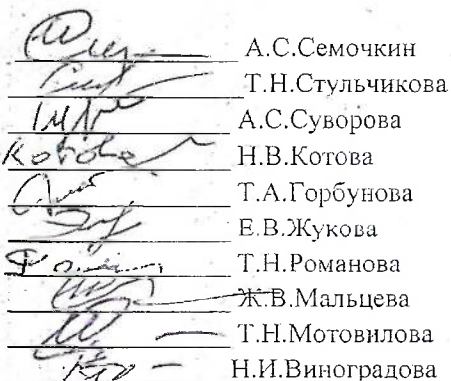 А.С.Семочкин
Т.Н.Стульчикова
А.С.Суворова
Котова Н.В.Котова
Т.А.Горбунова
Е.В.Жукова
Т.Н.Романова
Ж.В.Мальцева
Т.Н.Мотовилова
Н.И.Виноградова